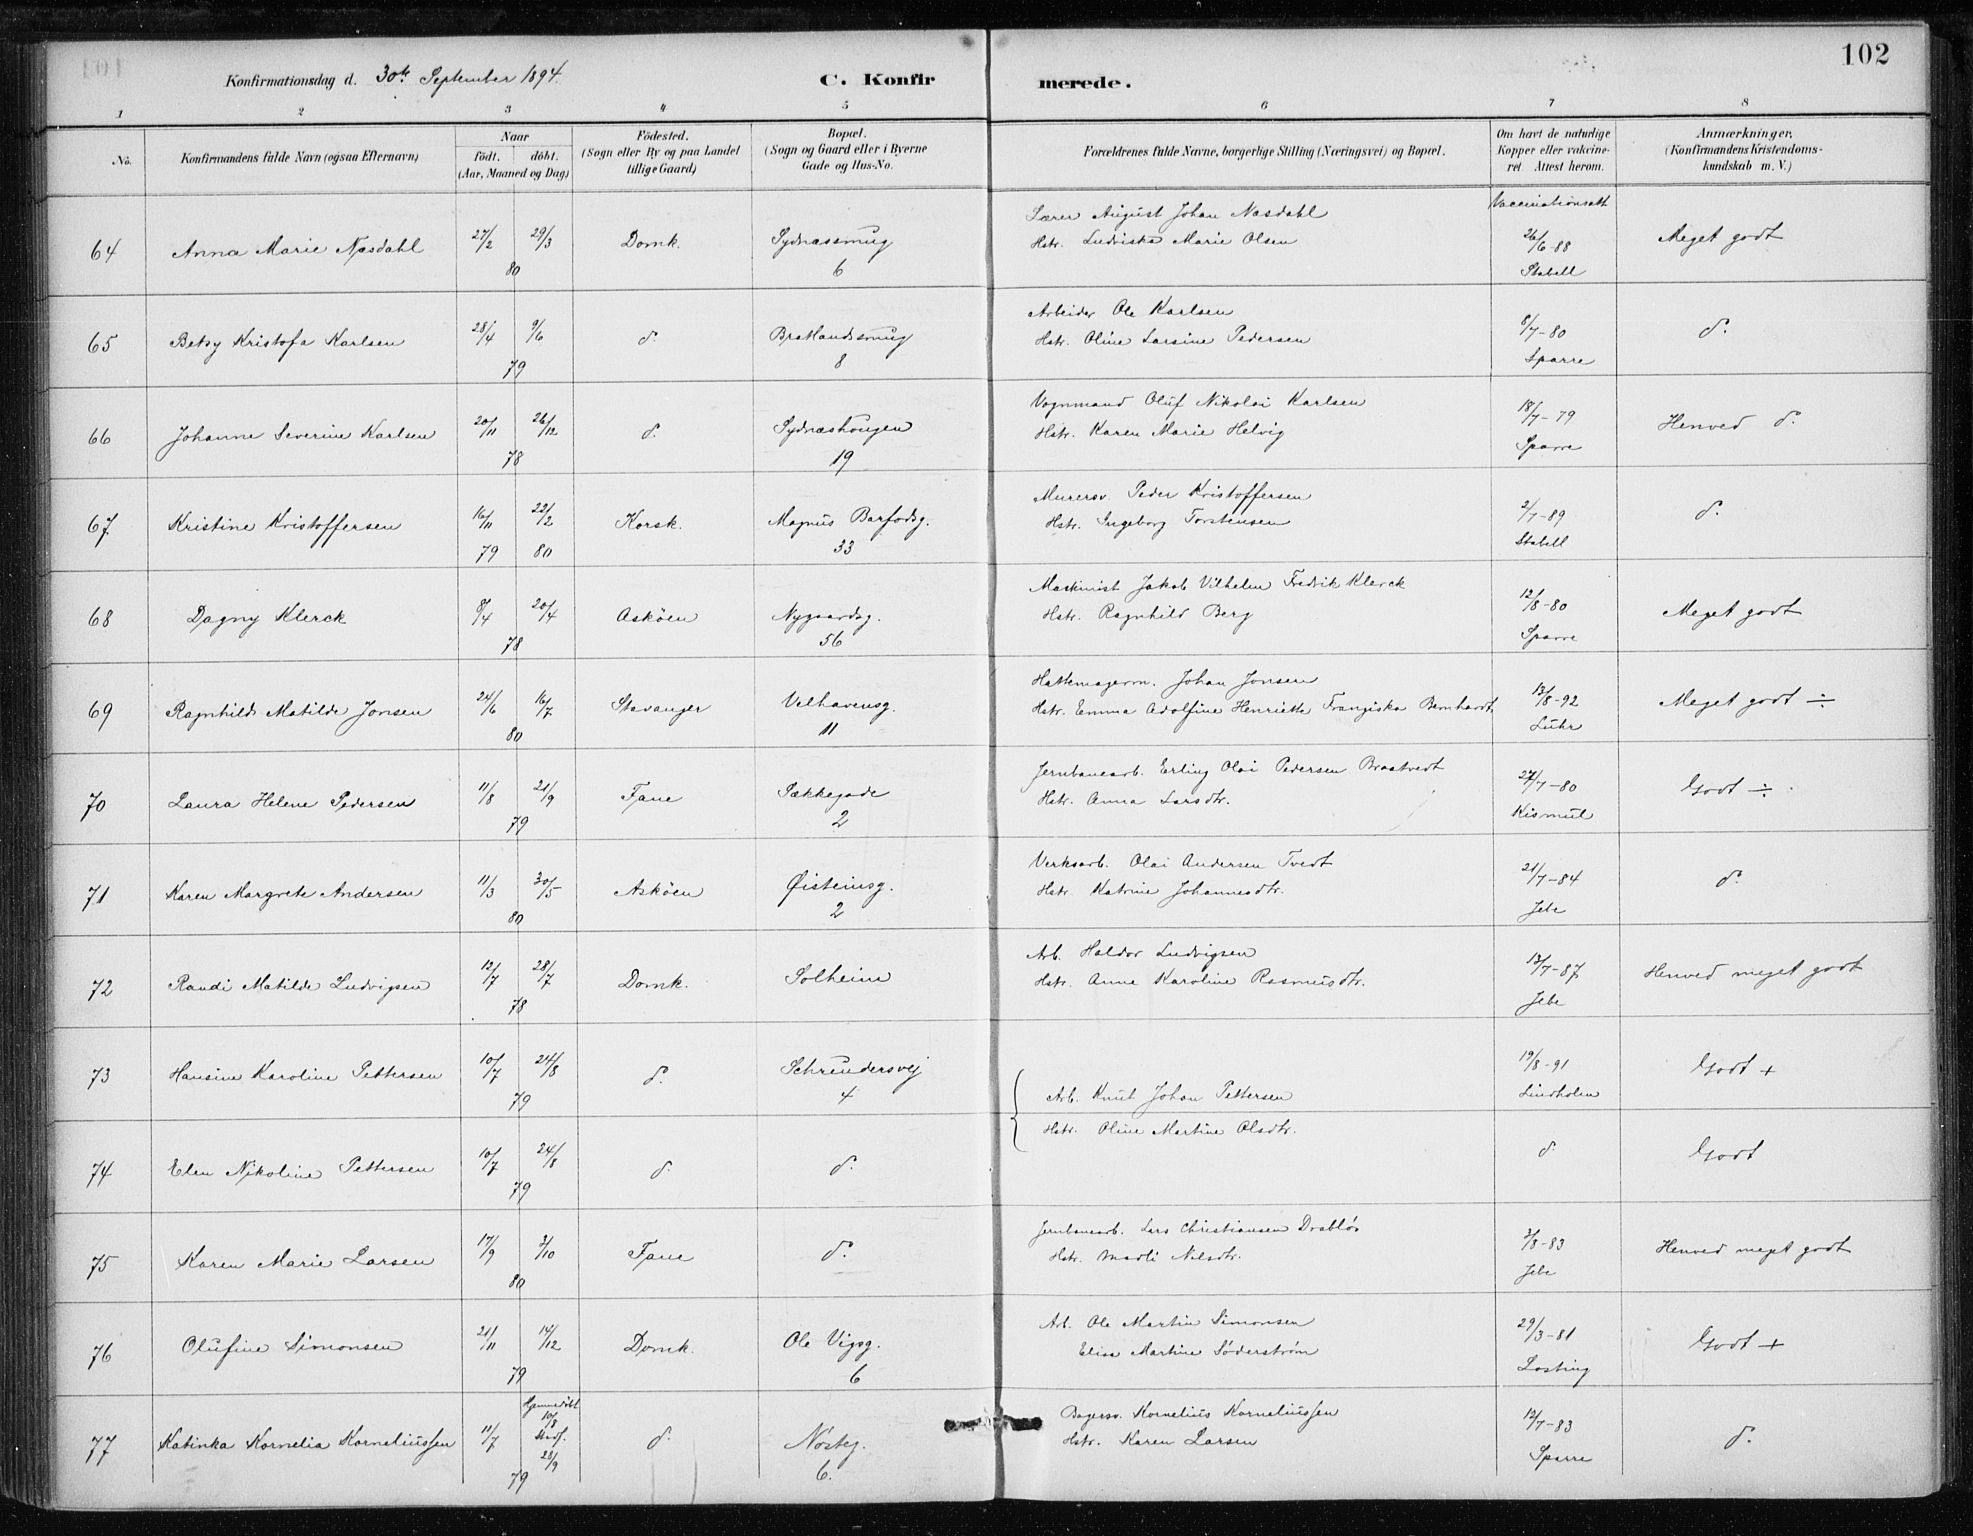 102
Konfirmationsdag d. 30te September 1894.
C. Konfirmerede.
1 2 3 4 5 6 7 8
No.
Konfirmandens fulde Navn (ogsaa Efternavn)
Naar
födt. döbt.
(Aar, Maaned og Dag)
Födested.
(Sogn eller By og paa Landet
tillige Gaard)
Bopæl.
(Sogn og Gaard eller i Byerne
Gade og Hus-No.
Forældrenes fulde Navne, borgerlige Stilling (Næringsvei) og Bopæl.
Om havt de naturlige
Kopper eller vakcine-
ret. Attest herom.
Anmærkninger.
(Konfirmandens Kristendoms-
kundskab m. V.)
Vaccinationsatt
64 Anna Marie Næsdahl 27/2 29/3 80 Domk. Sydnæssmug 6
Lærer August Johan Næsdahl
Hstr. Ludviska Marie Olsen
26/6-88 Stabell
Meget godt
65 Betsy Kristofa Karlsen 28/4 9/6 79 d. Bratlandssmug 8
Arbeider Ole Karlsen
Hstr. Oline Larsine Pedersen
8/7-80 Sparre
d.
66 Johanne Severine Karlsen 20/11 26/12 78 d. Sydnæshougen 19
Vognmand Oluf Nikolai Karlsen
Hstr. Karen Marie Helvig
18/7-79 Sparre
Henved d.
67 Kristine Kristoffersen 16/11 79 22/2 80 Korsk. Magnus Barfodsg. 33
Murersv. Peder Kristoffersen
Hstr. Ingeborg Torstensen
2/7-89 Stabell
d.
68 Dagny Klerck 8/4 20/4 78 Asköen Nygaardsg. 56
Maskinist Jakob Vilhelm Fredrik Klerck
Hstr. Ragnhild Berg
12/8-80 Sparre
Meget godt
69 Ragnhild Matilde Jonsen 24/6 16/7 80 Stavanger Velhavensg. 11
Hattemagerm. Johan Jonsen
Hstr. Emma Adolfine Henriette Franziska Bernhardt.
13/8-92 Lühr
Meget godt ÷
70 Laura Helene Pedersen 11/8 21/9 79 Fane Sækkegade 2
Jernbanearb. Erling Olai Pedersen Braatvedt
Hstr. Anna Larsdtr.
27/7-80 Kismul
Godt ÷
71 Karen Margrete Andersen 11/3 30/5 80 Asköen Øisteinsg. 2
Verksarb. Olai Andersen Tvedt
Hstr. Katrine Johannesdtr.
21/7-84 Jebe
d.
72 Randi Matilde Ludvigsen 12/7 28/7 78 Domk. Solheim
Arb. Haldor Ludvigsen
Hstr. Anna Karoline Rasmusdtr.
13/7-87 Jebe
Henved meget godt
73 Hansine Karoline Pettersen 10/7 24/8 79 d. Schreudersvej 4
Arb. Knut Johan Pettersen
19/8-91 Lindholm
Godt +
Hstr. Oline Martine Olsdtr.
74 Elen Nikoline Pettersen 10/7 24/8 79 d. d.
d.
Godt
75 Karen Marie Larsen 17/9 3/10 80 Fane d.
Jernbanearb. Lars Christiansen Drabløs
Hstr. Marli Nilsdtr.
3/8-83 Jebe
Henved meget godt
76 Olufine Simonsen 21/11 14/12 79 Domk. Ole Vigsg. 6
Arb. Ole Martin Simonsen
Elisa Martine Söderström
29/3-81 Losting
Godt +
77 Katinka Kornelia Korneliussen 11/7 Hjemmedöbt 10/8 Stadf. 28/9 79 d. Nøsteg. 6.
Bagersv. Kornelius Korneliussen
Hstr. Karen Larsen
12/7-83 Sparre
d.